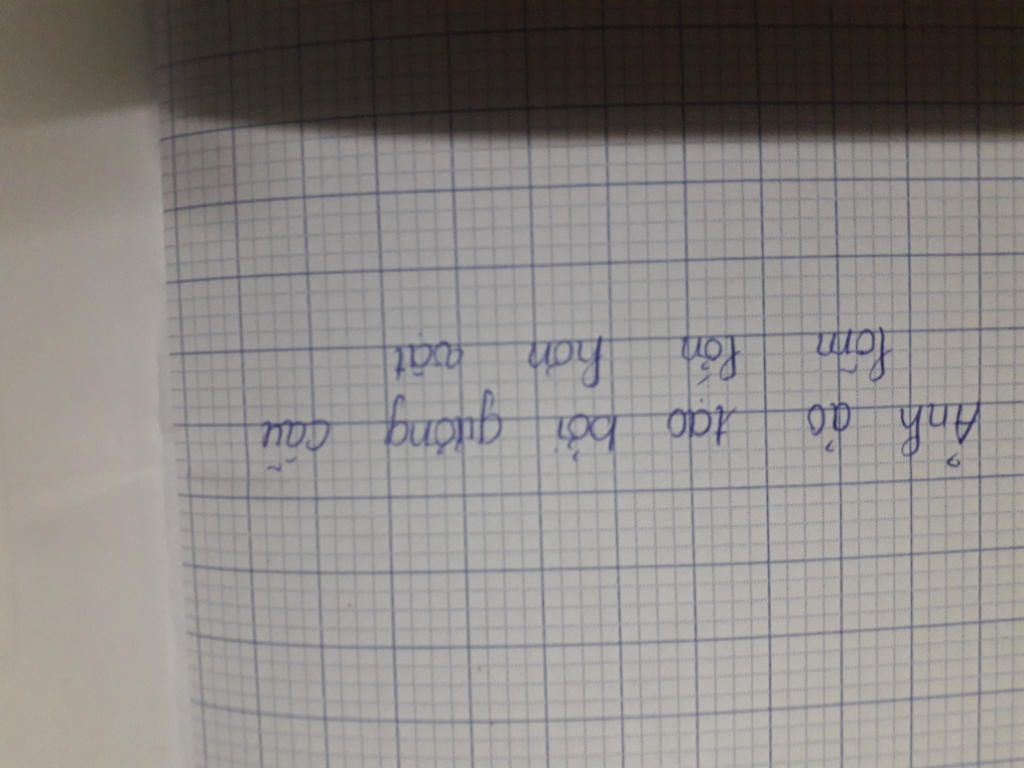 Ảnh ảo tạo bởi gương cầu
lõm lớn hơn vật